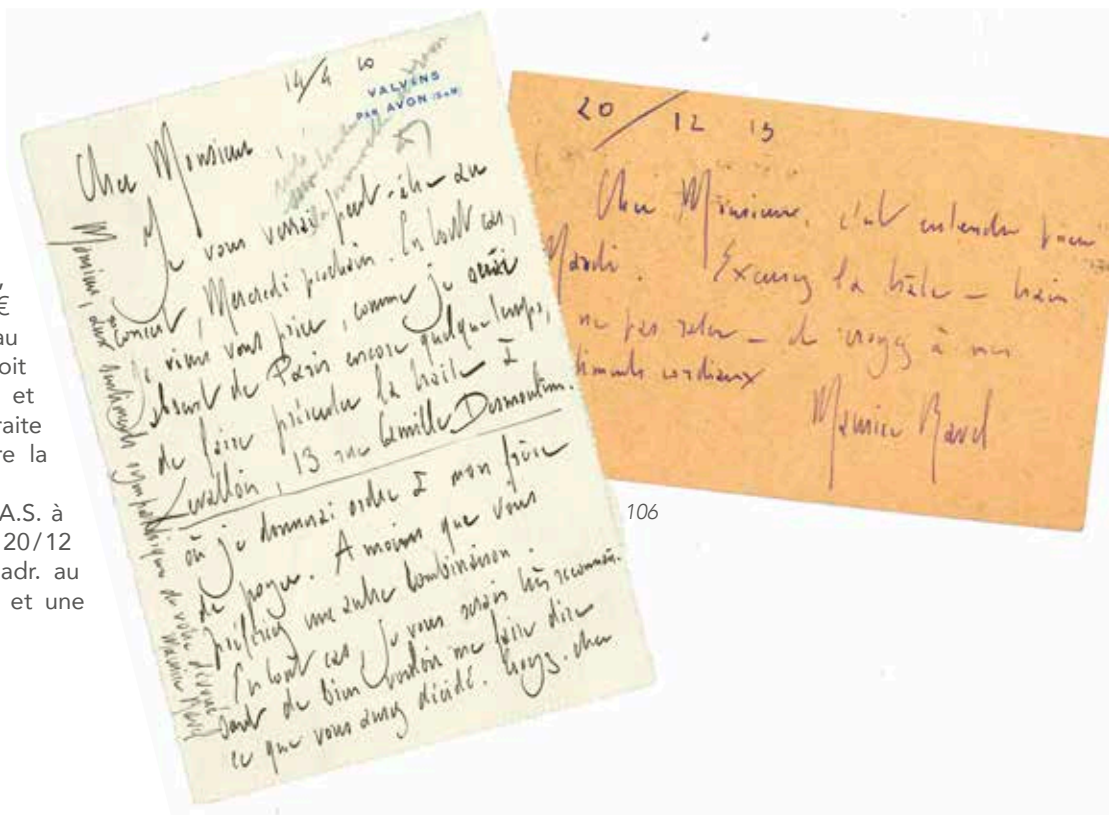 €
au
oit
et
raite
re la
A.S. à
20/12
adr. au
et une
14/4 10
VALVINS
PAR AVON (S&M)
Cher Monsieur,
Je vous verrai peut-être au
concert, Mercredi prochain. En tout cas,
je viens vous prier, comme je serai
absent de Paris encore quelque temps,
de faire présenter la traite à
Levallois, 13 rue Camille Desmoulins.
où je donnerai ordre à mon frère
de payer. A moins que vous
préfériez une autre combinaison.
En tout cas, je vous serais très reconnais-
sant de bien vouloir me faire dire
ce que vous aurez décidé. Croyez, cher
Monsieur, aux sentiments sympathiques de votre dévoué
Maurice Ravel
20/12 13
Cher Monsieur, c'est entendu pour
Mardi. Excusez la hâte – train
ne pas rater – et croyez à mes
timents cordiaux
Maurice Ravel
106